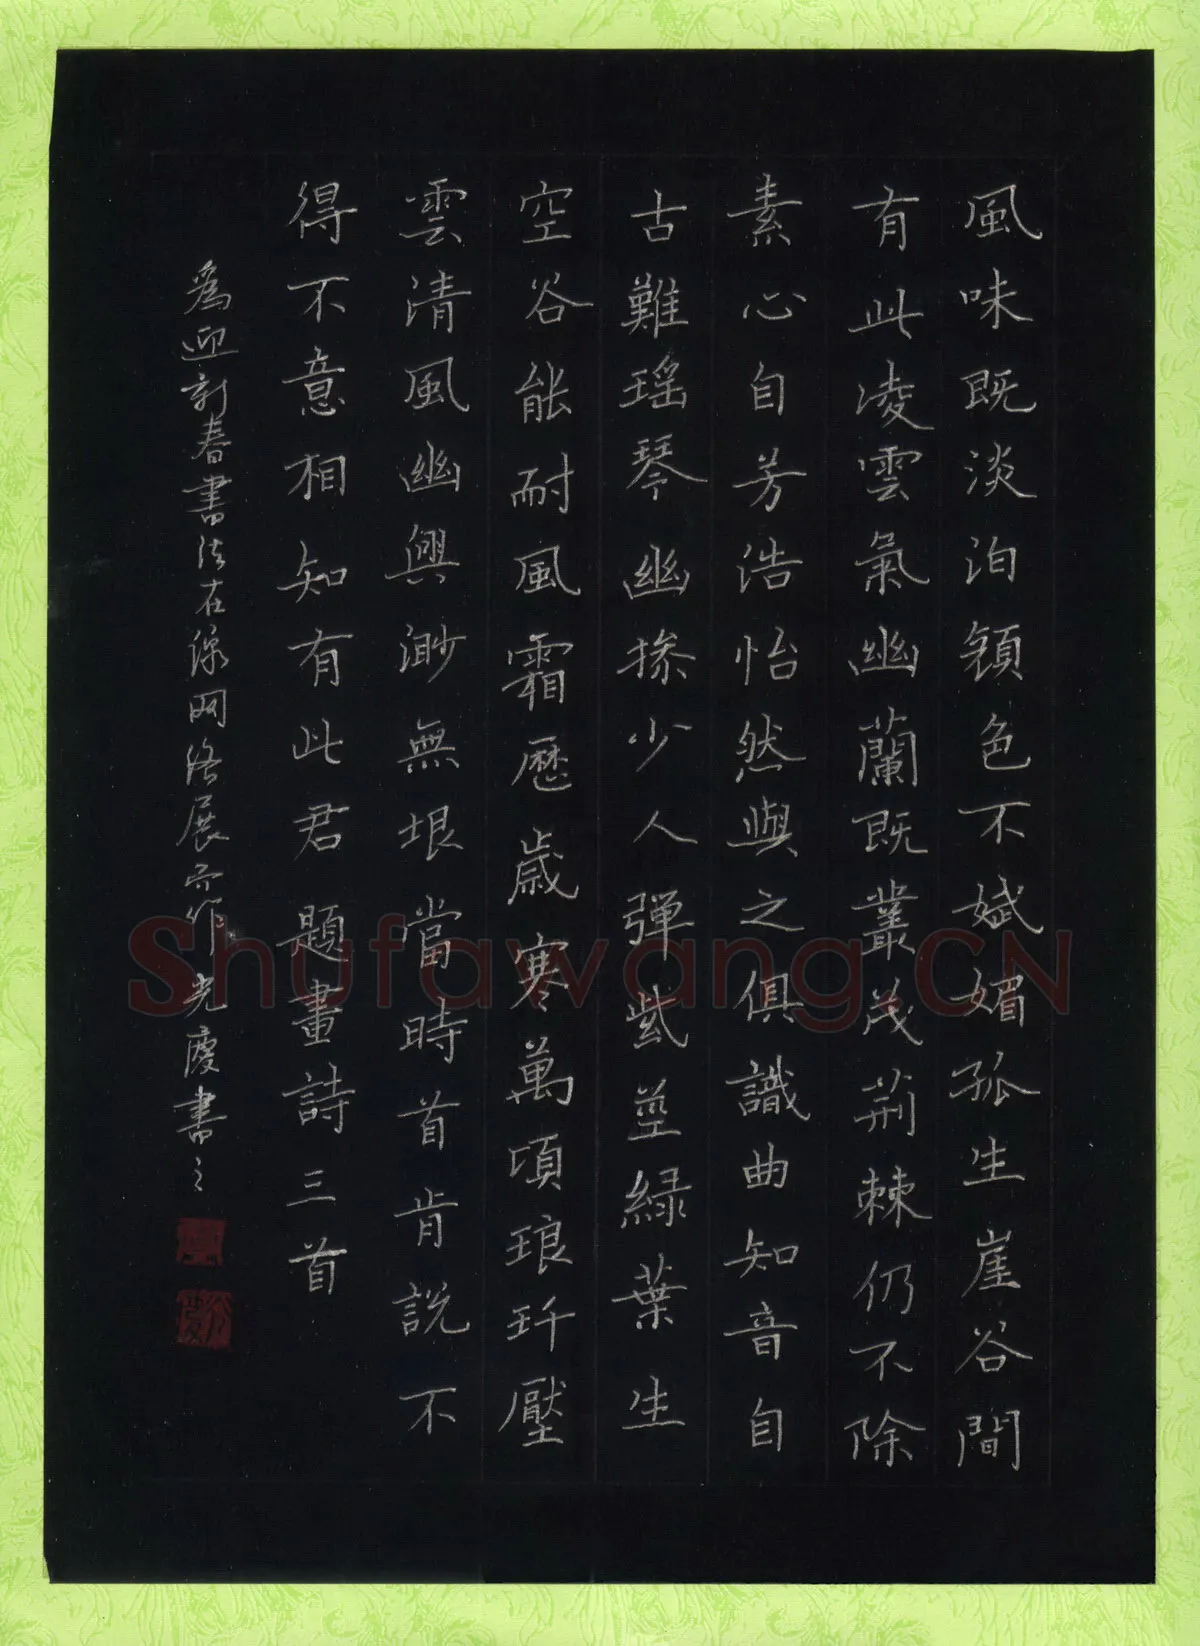 風味既淡泊顏色不斌媚孤生崖谷間
有此凌雲氣幽蘭既叢茂荊棘仍不除
素心自芳浩怡然與之俱識曲知音自
古難瑶琴幽操少人彈紫莖緑葉生
空谷能耐風霜歷歲寒萬頃琅玕壓
雲清風幽興渺無垠當時首肯説不
得不意相知有此君題畫詩三首
爲迎新春書法在線网络展而作光慶書之
Shufawang.CN